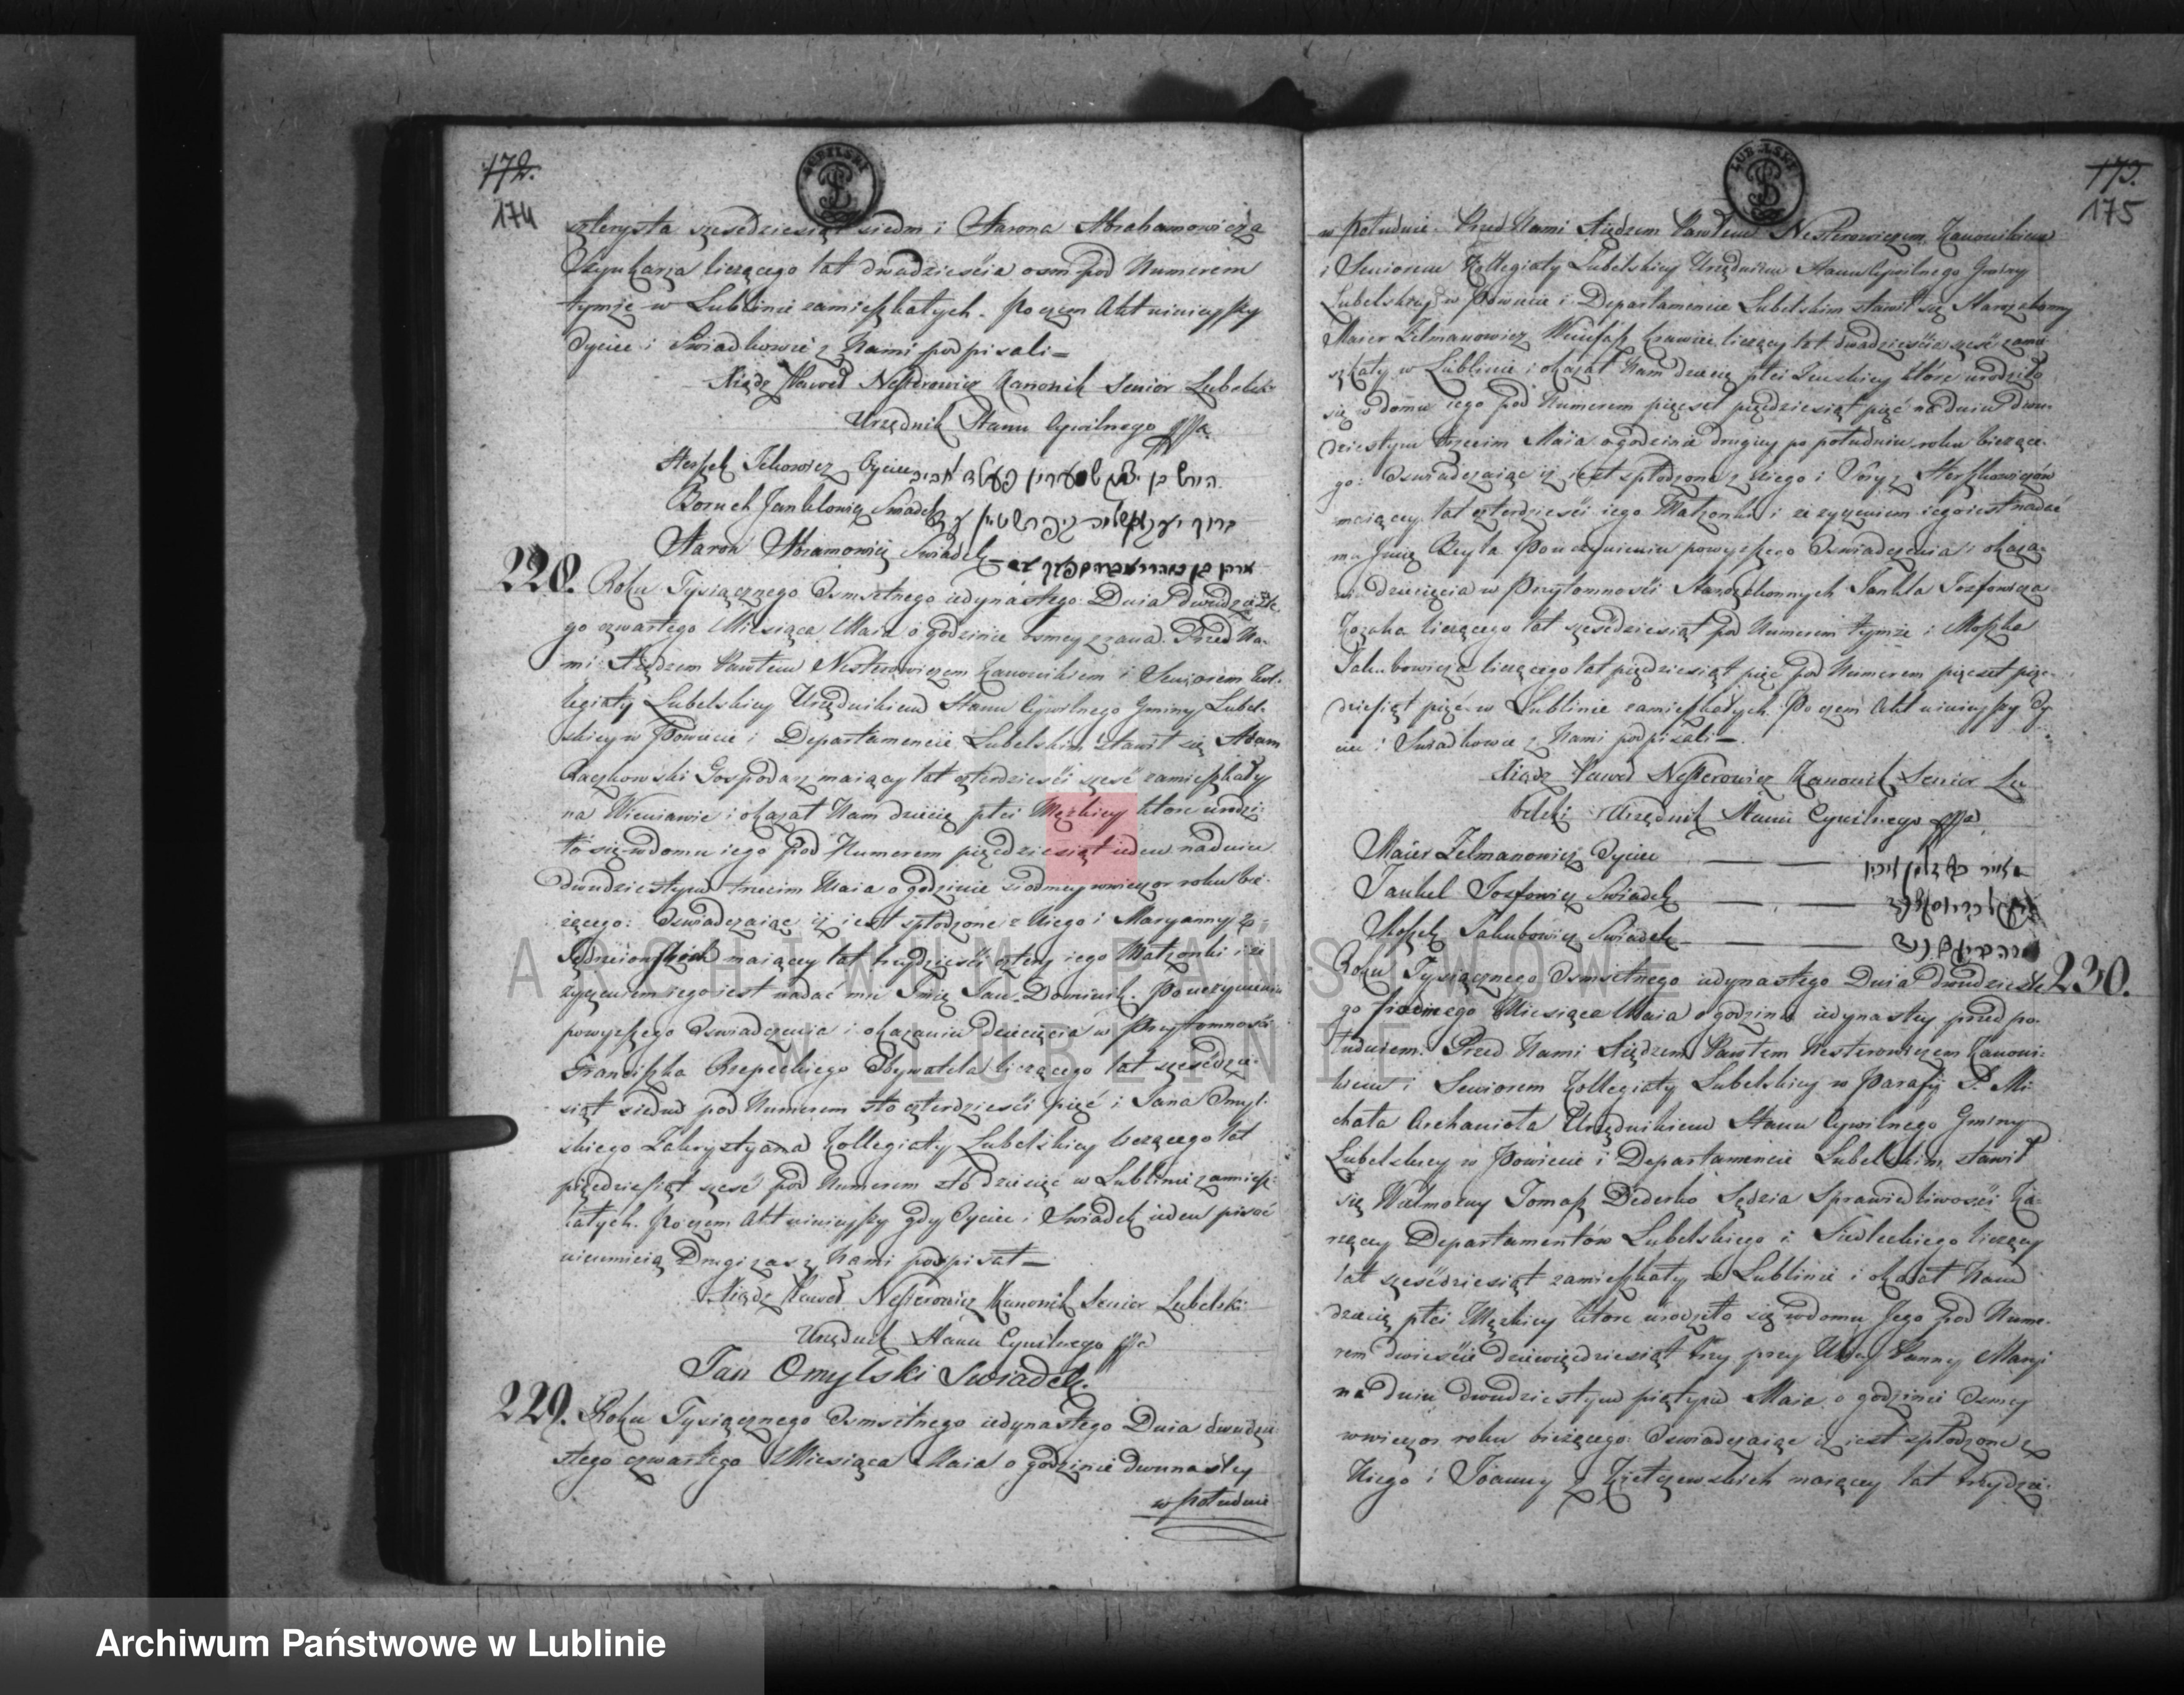 172.
174
LUBELSKI
czterysta sześćdziesiąt siedm i Aarona Abrahamowicza
Szynkarza liczącego lat dwadzieścia osm pod Numerem
tymże w Lublinie zamieszkałych. Poczem Akt ninieyszy
Oyciec i Swiadkowie z Nami podpisali
Xiądz Paweł Nesterowicz Kanonik Senior Lubelski
Urzędnik Stanu Cywilnego
Herszek Ickowicz Oyciec
Boruch Jankielowicz Swiadek
Aaron Abramowicz Swiadek
228.
Roku Tysiącznego Osmsetnego iedynastego Dnia dwudzieste-
go czwartego Miesiąca Maia o godzinie osmey zrana. Przed Na-
mi Xiędzem Pawłem Nesterowiczem Kanonikiem i Seniorem Kol-
legiaty Lubelskiey Urzędnikiem Stanu Cywilnego Gminy Lubel-
skiey w Powiecie i Departamencie Lubelskim stawił się Adam
Raczkowski Gospodarz maiący lat czterdzieści sześć zamieszkały
na Wieniawie i okazał Nam dziecię płci Męzkiey ktore urodzi-
ło się w domu iego pod Numerem pięćdziesiąt ieden na dniu
dwudziestym trzecim Maia o godzinie siodmey wwieczor roku bie-
żącego: Oswiadczaiąc iż iest spłodzone z Niego i Maryanny z
maiącey lat trzydzieści cztery iego Małzonki i że
życzeniem iego iest nadać mu Imię Jan Dominik. Po uczynieniu
powyższego Oswiadczenia i okazaniu dziecięcia w Przytomności
Franciszka Rzepeckiego Obywatela liczącego lat sześćdzie-
siąt siedm pod Numerem sto czterdzieści pięć i Jana Omyl-
skiego Zakrystyana Kollegiaty Lubelskiey liczącego lat
pięćdziesiąt sześć pod Numerem sto dziesięć w Lublinie zamiesz-
kałych. Poczem Akt ninieyszy gdy Oyciec i Swiadek ieden pisać
nieumieią Drugi zas z Nami podpisał
Xiądz Paweł Nesterowicz Kanonik Senior Lubelski
Urzędnik Stanu Cywilnego
Jan Omylski Swiadek.
229.
Roku Tysiącznego Osmsetnego iedynastego Dnia dwudzie-
stego czwartego Miesiąca Maia o godzinie dwunastey
w południe
173.
175
LUBELSKI
w Południe. Przed Nami Xiędzem Pawłem Nesterowiczem Kanonikiem
i Seniorem Kollegiaty Lubelskiey Urzędnikiem Stanu Cywilnego Gminy
Lubelskiey w Powiecie i Departamencie Lubelskim stawił się Starozakonny
Maier Zelmanowicz krawiec liczący lat dwadzieścia sześć zamie-
szkały w Lublinie i okazał Nam dziecię płci Zenskiey które urodziło
się w domu iego pod Numerem pięćset pięćdziesiąt pięć na dniu dwu-
dziestym trzecim Maia o godzinie drugiey po południu roku bieżące-
go: Oswiadczaiąc iż iest spłodzone z Niego i z Herszkowiczów
maiącey lat czterdzieści iego Małzonki i że życzeniem iego iest nadać
mu Imię Beyla Po uczynieniu powyższego Oswiadczenia i okaza-
niu dziecięcia w Przytomności Starozakonnych Jankla Jozfowicza
liczącego lat sześćdziesiąt pod Numerem tymże i Moszka
Jakubowicza liczącego lat pięćdziesiąt pięć pod Numerem pięćset pięć-
dziesiąt pięć w Lublinie zamieszkałych. Poczem Akt ninieyszy Oy-
ciec i Swiadkowie z Nami podpisali
Xiądz Paweł Nesterowicz Kanonik Senior Lu-
belski Urzędnik Stanu Cywilnego
Maier Zelmanowicz Oyciec
Jankel Jozfowicz Swiadek
Moszek Jakubowicz Swiadek
230.
Roku Tysiącznego Osmsetnego iedynastego Dnia dwudzieste-
go siodmego Miesiąca Maia o godzinie iedynastey przed po-
łudniem. Przed Nami Xiędzem Pawłem Nesterowiczem Kanoni-
kiem i Seniorem Kollegiaty Lubelskiey w Parafij S. Mi-
chała Archanioła Urzędnikiem Stanu Cywilnego Gminy
Lubelskiey w Powiecie i Departamencie Lubelskim stawił
się Wielmożny Tomasz Dederko Sędzia Sprawiedliwości Ka-
rzącey Departamentów Lubelskiego i Siedleckiego liczący
lat sześćdziesiąt zamieszkały w Lublinie i okazał Nam
dziecię płci Męzkiey ktore urodziło się w domu Jego pod Nume-
rem dwieście dziewięćdziesiąt trzy przy Ulicy Panny Maryi
na dniu dwudziestym piątym Maia o godzinie Osmey
wwieczor roku bieżącego: Oswiadczaiąc iż iest spłodzone z
Niego i Joanny z maiącey lat trzydzie-
ARCHIWUM PAŃSTWOWE
W LUBLINIE
Archiwum Państwowe w Lublinie